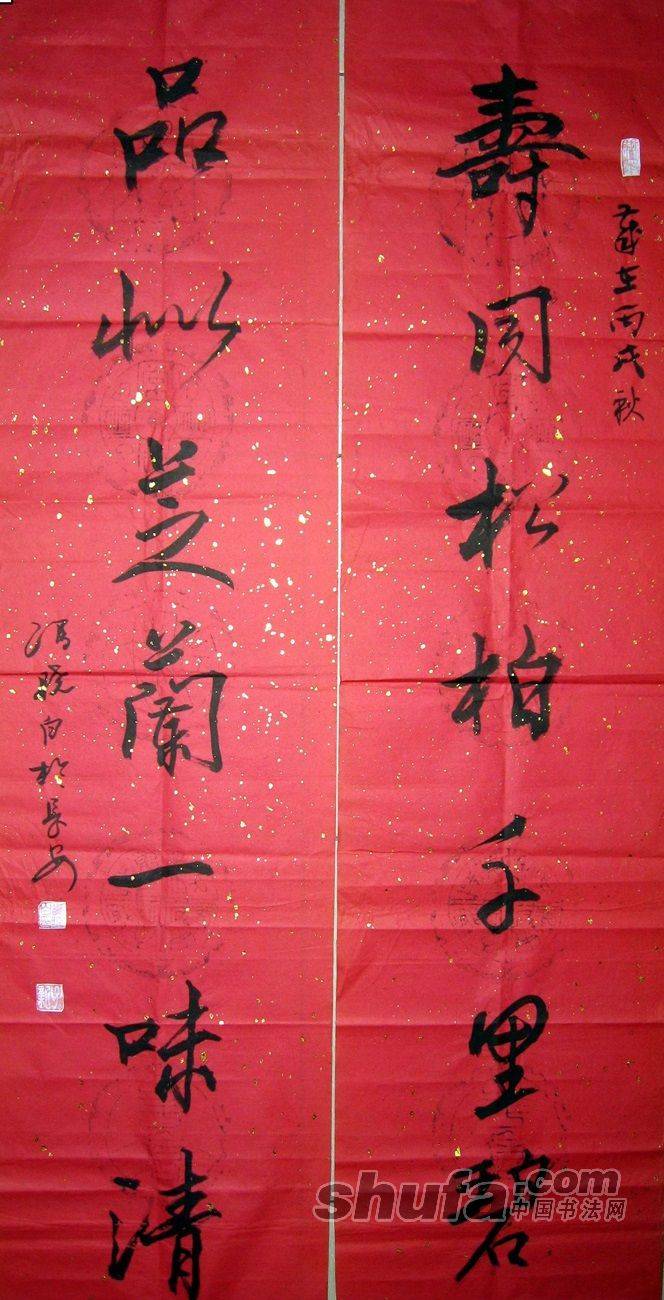 壽同松柏千里碧
歲在丙戌秋
品似芝蘭一味清
馮曉白於長安
shufa.com
中国书法网